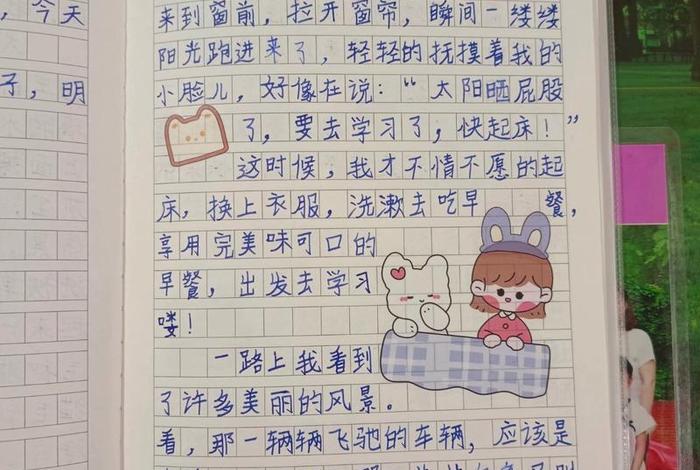 ，今天
子，明
来到窗前，拉开窗帘，瞬间一缕缕
阳光跑进来了，轻轻的抚摸着我的
小脸儿，好像在说：“太阳晒屁股
了，要去学习了，快起床！”
这时候，我才不情不愿的起
床，换上衣服，洗漱去吃早 餐，
享用完美味可口的
早餐，出发去学习
喽！
一路上我看到
了许多美丽的风景。
看，那一辆辆飞驰的车辆，应该是